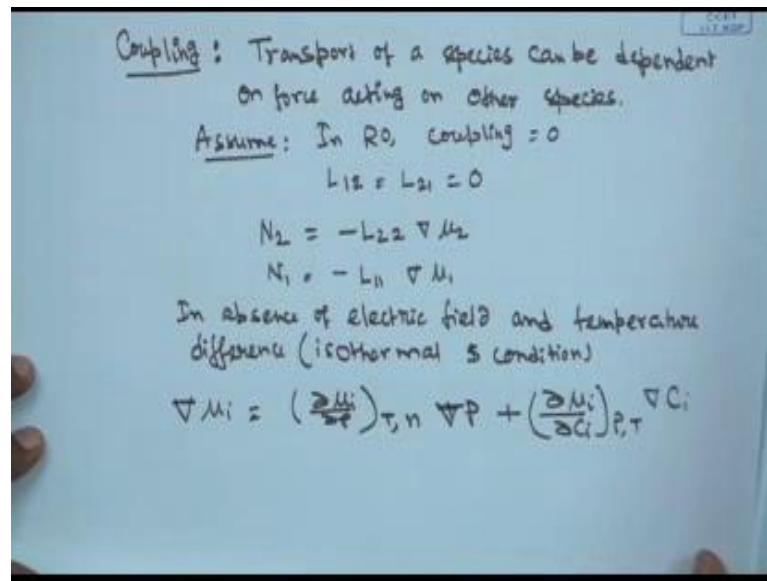 Coupling : Transport of a species can be dependent
on force acting on other species.
Assume : In RO, coupling = 0
L12 = L21 = 0
N2 = -L22 ∇ μ2
N1 = - L11 ∇ μ1
In absence of electric field and temperature
difference (isothermal s condition)
∇ μi = (∂μi/∂P)T,n ∇P + (∂μi/∂Ci)P,T ∇ Ci